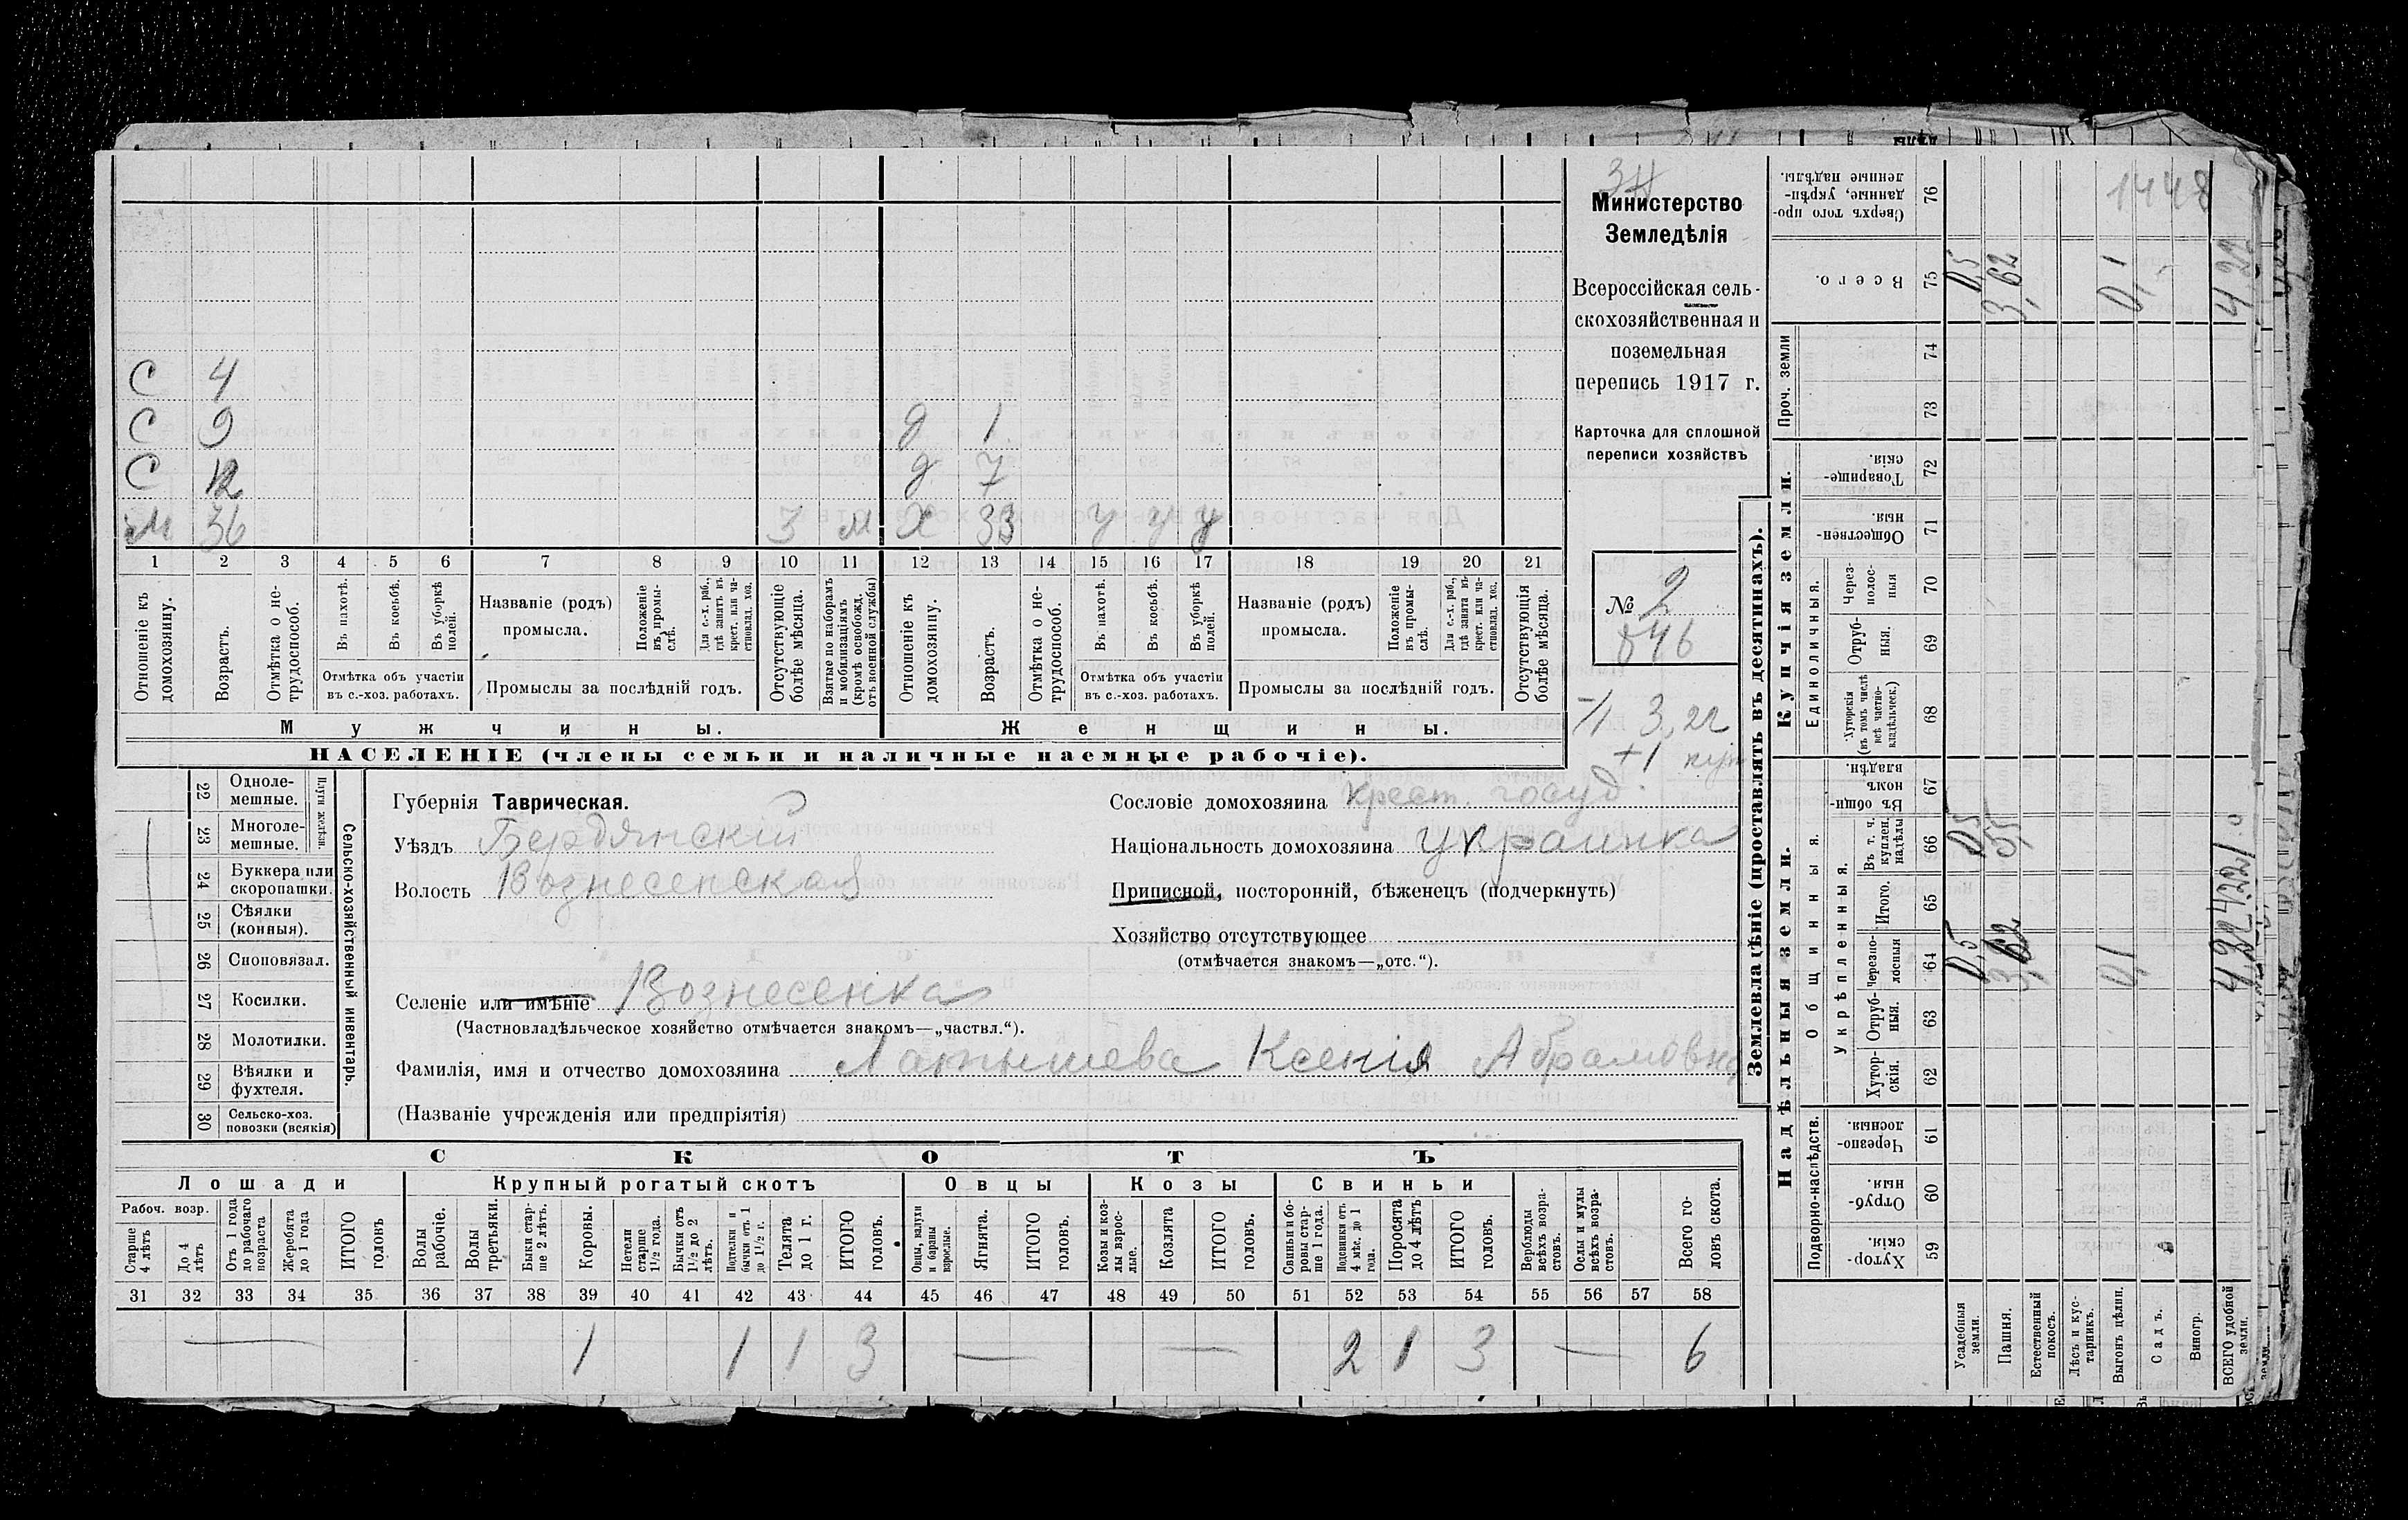 С 4
С 9 д 1
С 12 д 7
М 36 3 м Х 33 у у у
1 2 3 4 5 6 7 8 9 10 11 12 13 14 15 16 17 18 19 20 21
Отношеніе къ домохозяину.
Возрастъ.
Отмѣтка о не-трудоспособ.
Въ пахотѣ.
Въ косьбѣ.
Въ уборкѣ полей.
Отмѣтка объ участіи
въ с.-хоз. работахъ.
Названіе (родъ)
промысла.
Положеніе въ промы-слѣ.
Для с.-х. раб., гдѣ занятъ въ крест. или ча-стновлад. хоз.
Промыслы за послѣдній годъ.
Отсутствующіе болѣе мѣсяца.
Взятые по наборамъ и мобилизаціямъ (кромѣ освобожд. отъ военной службы)
Отношеніе къ домохозяину.
Возрастъ.
Отмѣтка о не-трудоспособ.
Въ пахотѣ.
Въ косьбѣ.
Въ уборкѣ полей.
Отмѣтка объ участіи
въ с.-хоз. работахъ.
Названіе (родъ)
промысла.
Положеніе въ промы-слѣ.
Для с.-х. раб., гдѣ занята въ крест. или ча-стновлад. хоз.
Промыслы за послѣдній годъ.
Отсутствующія болѣе мѣсяца.
Мужчины. Женщины.
НАСЕЛЕНІЕ (члены семьи и наличные наемные рабочіе).
Министерство
Земледѣлія
Всероссійская сель-
скохозяйственная и
поземельная
перепись 1917 г.
Карточка для сплошной
переписи хозяйствъ
№ 2
846
3,22
+1
22 Одноле-
мешные.
23 Многоле-
мешные.
Плуги желѣзн.
24 Буккера или
скоропашки.
25 Сѣялки
(конныя).
26 Сноповязал.
27 Косилки.
28 Молотилки.
29 Вѣялки и
фухтеля.
30 Сельско-хоз.
повозки (всякія)
Сельско-хозяйственный инвентарь.
Губернія Таврическая.
Уѣздъ Бердянскій
Волость Вознесенская
Селеніе или имѣніе Вознесенка
(Частновладѣльческое хозяйство отмѣчается знакомъ—„частвл.“).
Фамилія, имя и отчество домохозяина Латышева Ксенія Абрамовна
(Названіе учрежденія или предпріятія)
Сословіе домохозяина крест. госуд.
Національность домохозяина украинка
Приписной, посторонній, бѣженецъ (подчеркнуть)
Хозяйство отсутствующее
(отмѣчается знакомъ—„отс.“).
СКОТЪ
Лошади Крупный рогатый скотъ Овцы Козы Свиньи
Рабоч. возр.
Старше 4 лѣтъ
До 4 лѣтъ
Отъ 1 года до рабочаго возраста
Жеребята до 1 года
ИТОГО головъ
Волы рабочіе.
Волы третьяки.
Быки стар-ше 2 лѣтъ.
Коровы.
Нетели старше 1½ года.
Бычки отъ 1½ до 2 лѣтъ.
Подтелки и бычки отъ 1 до 1½ г.
Телята до 1 г.
ИТОГО головъ.
Овцы, валухи и бараны взрослые.
Ягнята.
ИТОГО головъ.
Козы и коз-лы взрос-лые.
Козлята
ИТОГО головъ.
Свиньи и бо-ровы стар-ше 1 года.
Подсвинки отъ 4 мѣс. до 1 года.
Поросята до 4 лѣтъ
ИТОГО головъ.
Верблюды всѣхъ возра-стовъ.
Ослы и мулы всѣхъ возра-стовъ.
Всего го-ловъ скота.
31 32 33 34 35 36 37 38 39 40 41 42 43 44 45 46 47 48 49 50 51 52 53 54 55 56 57 58
— 1 1 1 3 — — 2 1 3 — 6
Землевладѣніе (проставлять въ десятинахъ).
Надѣльныя земли. Купчія земли. Проч. земли
Подворно-наслѣдств.
Общинныя.
Укрѣпленныя.
Единоличныя.
Хутор-скія. 59
Отруб-ныя. 60
Черезпо-лосныя. 61
Хутор-скія. 62
Отруб-ныя. 63
Черезпо-лосныя 64
Итого. 65
Въ т. ч. куплен. надѣлы 66
Въ общин-номъ владѣн. 67
Хуторскія (въ томъ числѣ всѣ частно-владѣльческ.) 68
Отруб-ныя. 69
Через-полос-ныя 70
Обществен-ныя 71
Товарище-скія. 72
73
74
Всего. 75
Сверхъ того про-данные, укрѣп-ленные надѣлы. 76
Усадебныя земли. 0,5 0,5 0,5
Пашня. 3,62 55 3,62
Естественный покосъ.
Лѣсъ и кус-тарникъ.
Выгонъ цѣлин. 0,1 0,1
Садъ.
Виногр.
ВСЕГО удобной земли. 4,22 4,22
1448